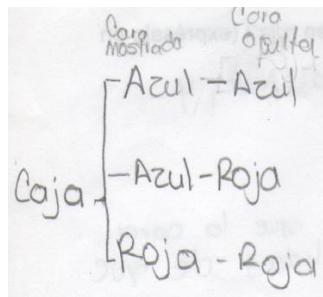 Cara mostrada
Cara oculta
Azul - Azul
Caja
Azul - Roja
Roja - Roja